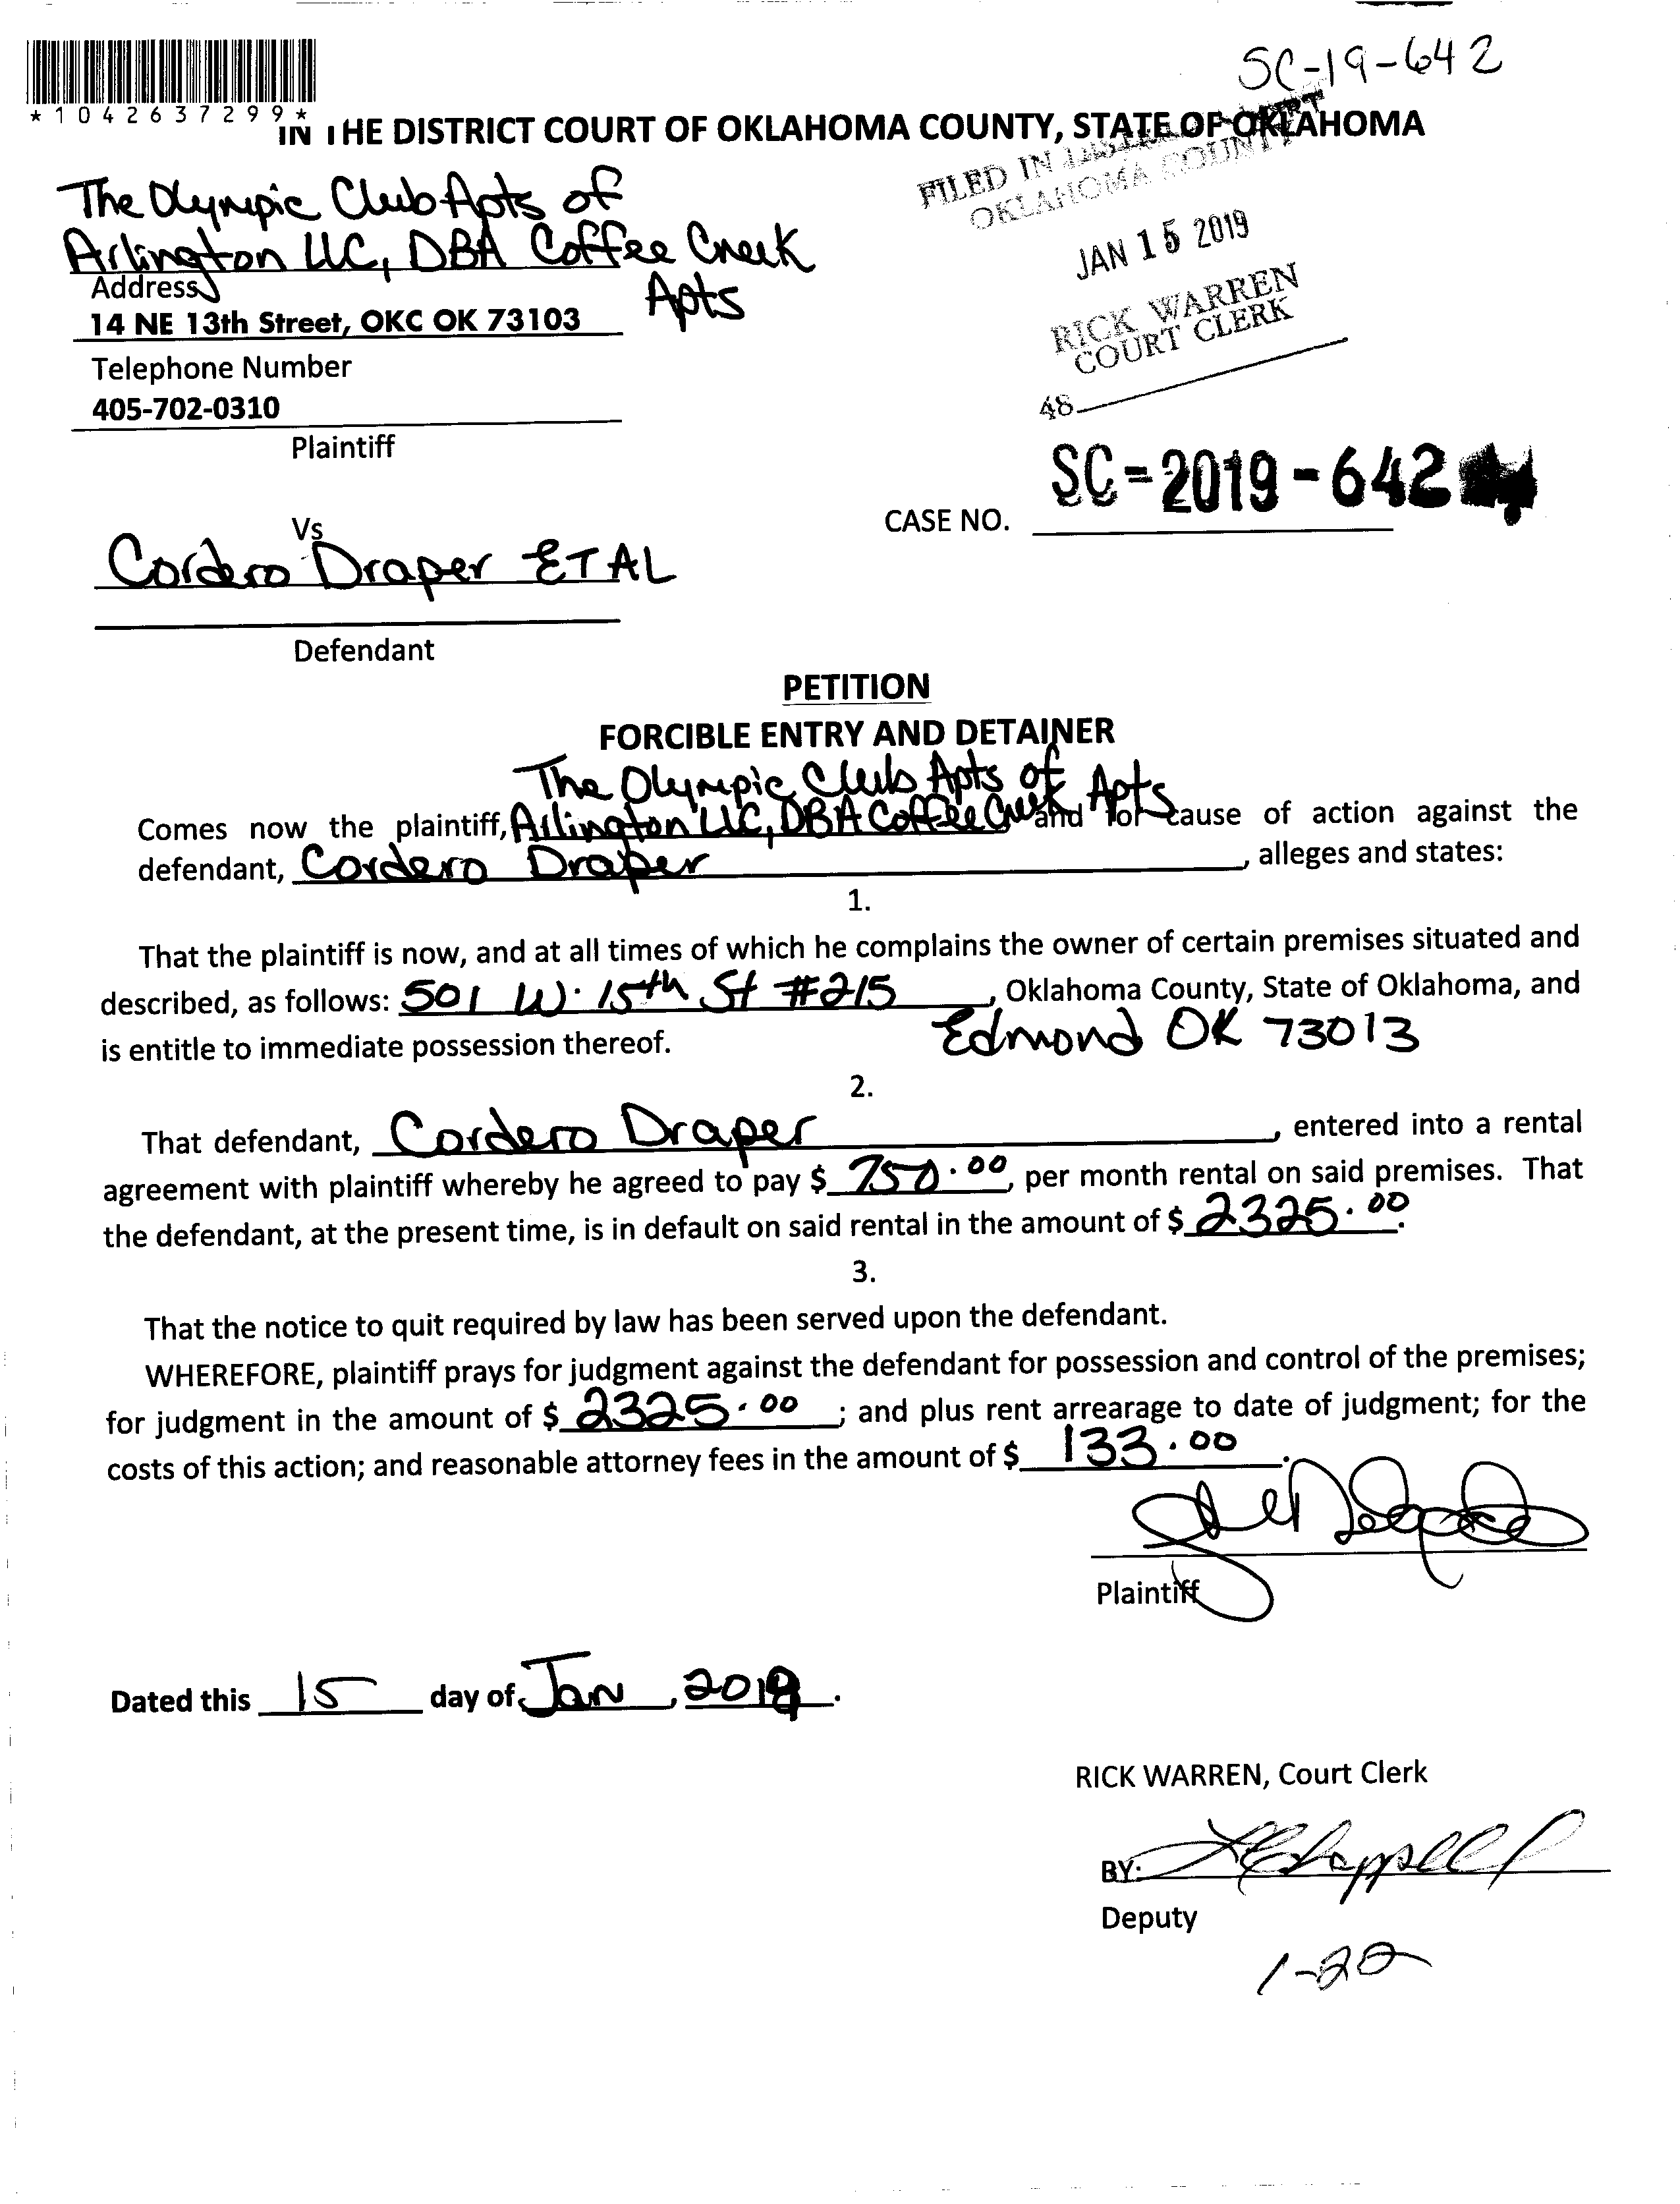 SC-19-642
*1042637299*
IN THE DISTRICT COURT OF OKLAHOMA COUNTY, STATE OF OKLAHOMA
The Olympic Club Apts of
Arlington LLC, DBA Coffee Creek
Apts
FILED IN DISTRICT COURT
OKLAHOMA COUNTY
JAN 15 2019
RICK WARREN
COURT CLERK
48
Address
14 NE 13th Street, OKC OK 73103
Telephone Number
405-702-0310
Plaintiff
SC-2019-642
CASE NO.
Vs
Cordero Draper ET AL
Defendant
PETITION
FORCIBLE ENTRY AND DETAINER
The Olympic Club Apts of
Comes now the plaintiff, Arlington LLC, DBA Coffee Creek Apts and for cause of action against the
defendant, Cordero Draper, alleges and states:
1.
That the plaintiff is now, and at all times of which he complains the owner of certain premises situated and
described, as follows: 501 W. 15th St #215, Oklahoma County, State of Oklahoma, and
is entitle to immediate possession thereof. Edmond OK 73013
2.
That defendant, Cordero Draper, entered into a rental
agreement with plaintiff whereby he agreed to pay $ 750.00, per month rental on said premises. That
the defendant, at the present time, is in default on said rental in the amount of $ 2325.00.
3.
That the notice to quit required by law has been served upon the defendant.
WHEREFORE, plaintiff prays for judgment against the defendant for possession and control of the premises;
for judgment in the amount of $ 2325.00; and plus rent arrearage to date of judgment; for the
costs of this action; and reasonable attorney fees in the amount of $ 133.00.
Plaintiff
Dated this 15 day of Jan, 2019.
RICK WARREN, Court Clerk
BY:
Deputy
1-22